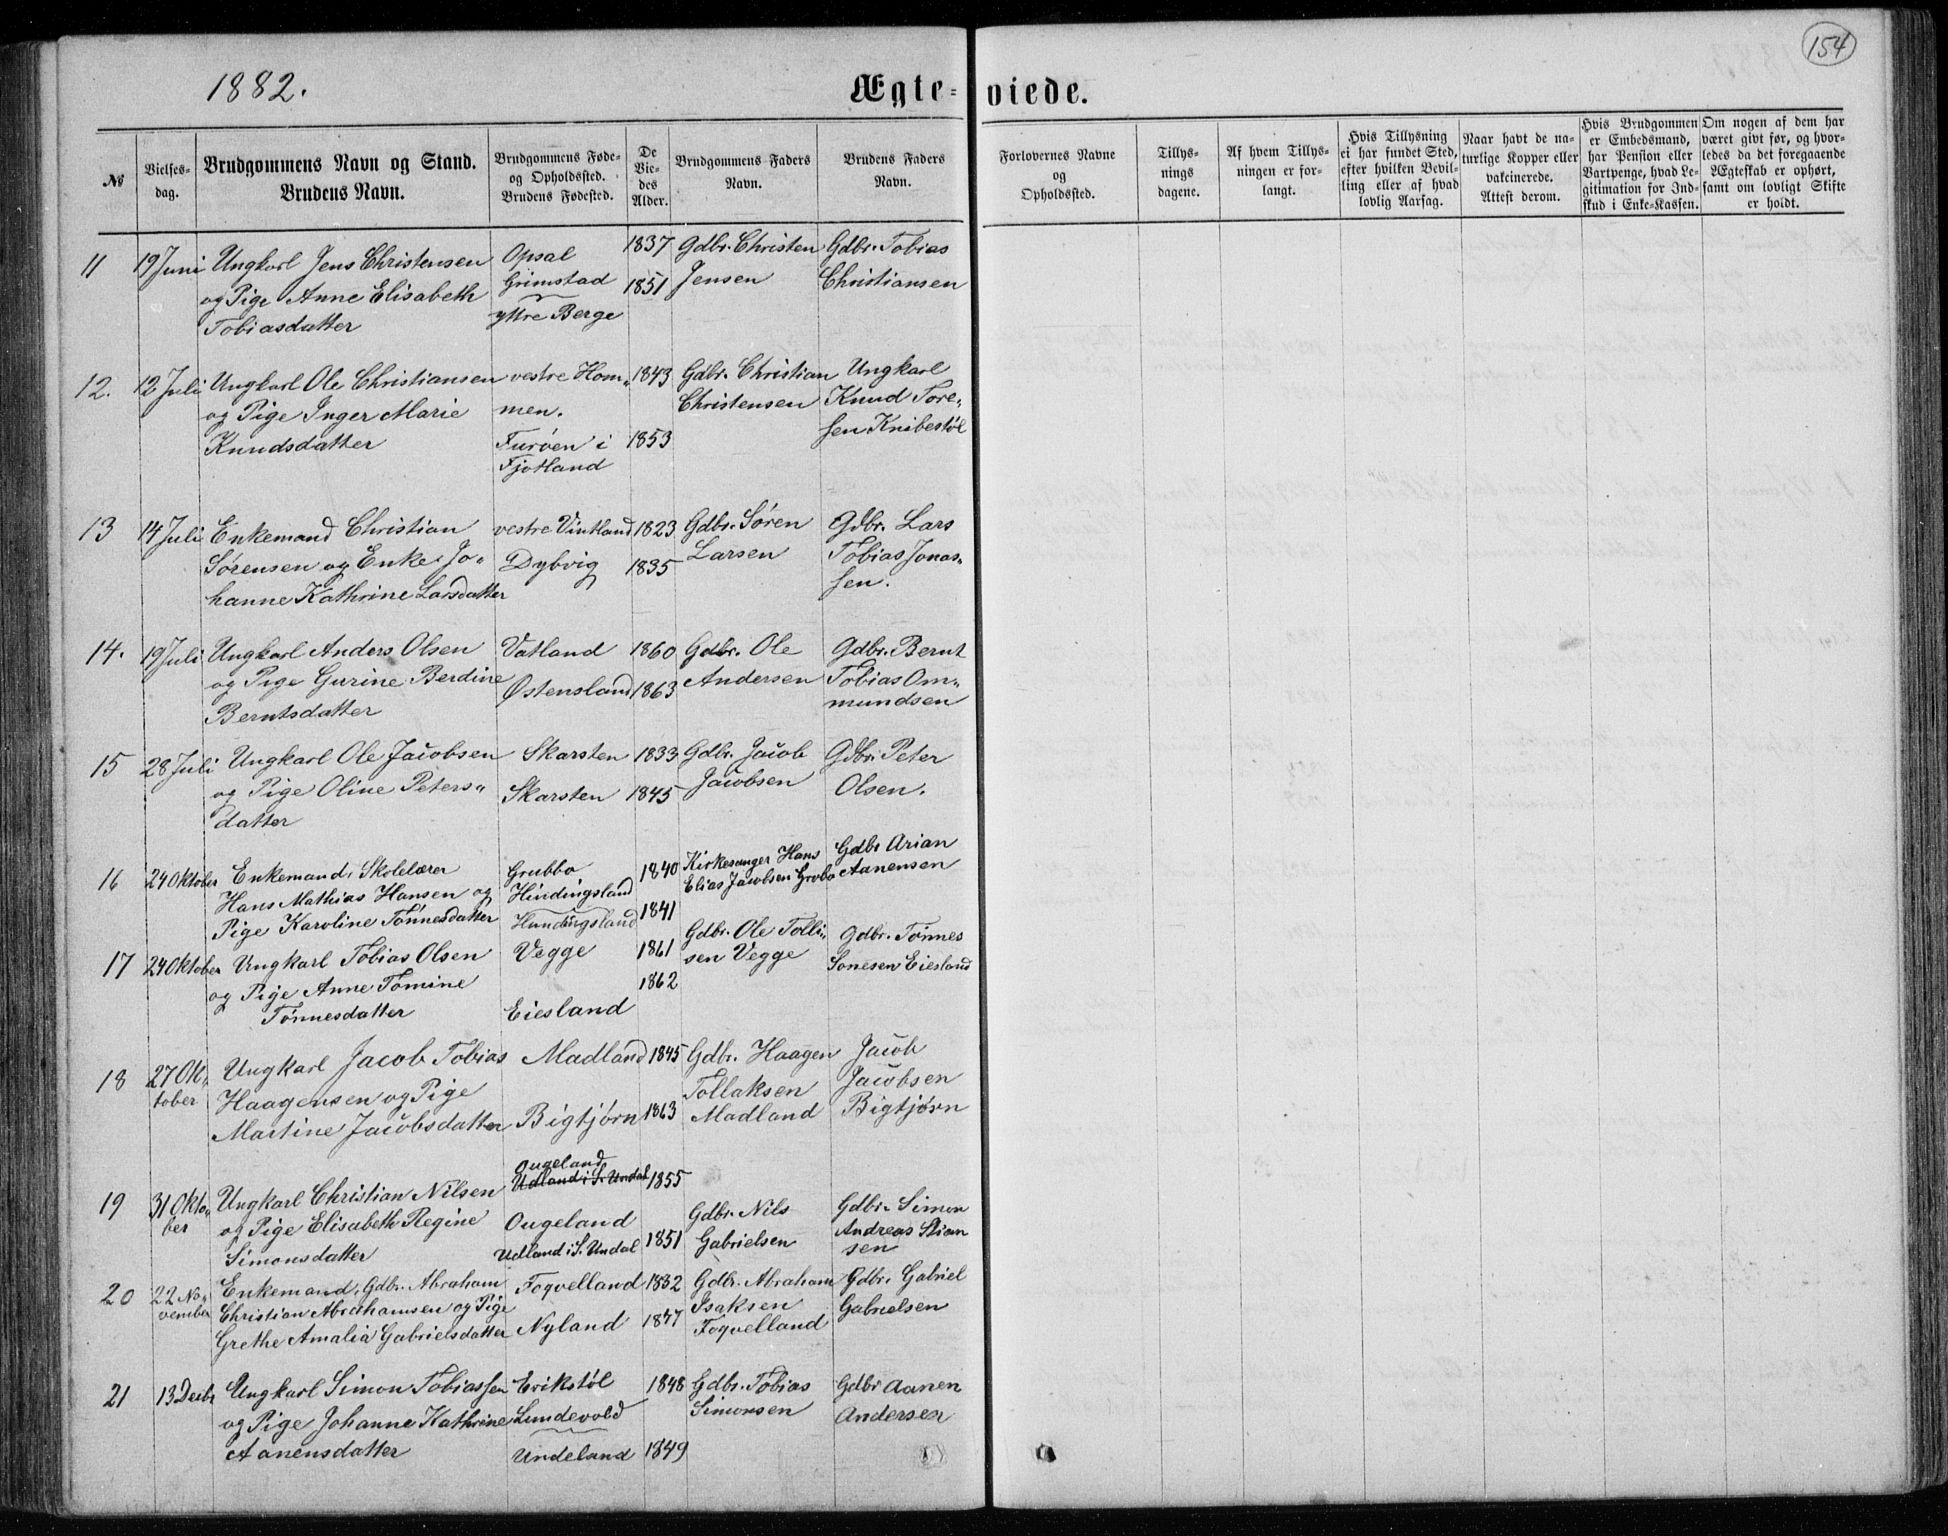 154
1882.
Ægte-viede.
№
Vielses-
dag.
Brudgommens Navn og Stand.
Brudens Navn.
Brudgommens Føde-
og Opholdssted.
Brudens Fødested.
De
Vie-
des
Alder.
Brudgommens Faders
Navn.
Brudens Faders
Navn.
Forlovernes Navne
og
Opholdssted.
Tillys-
nings
dagene.
Af hvem Tillys-
ningen er for-
langt.
Hvis Tillysning
ei har fundet Sted,
efter hvilken Bevil-
ling eller af hvad
lovlig Aarsag.
Naar havt de na-
turlige Kopper eller
vakcinerede.
Attest derom.
Hvis Brudgommen
er Embedsmand,
har Pension eller
Vartpenge, hvad Le-
gitimation for Ind-
skud i Enke-Kassen.
Om nogen af dem har
været givt før, og hvor-
ledes da det foregaaende
Ægteskab er ophørt,
samt om lovligt Skifte
er holdt.
11
19 Juni
Ungkarl Jens Christensen
og Pige Anne Elisabeth
Tobiasdatter
Opsal
Grimstad
yttre Berge
1837
1851
Gdbr. Christen
Jensen
Gdbr. Tobias
Christiansen
12.
12 Juli
Ungkarl Ole Christiansen
og Pige Inger Marie
Knudsdatter
vestre Hom„
men.
Furöen i
Fjotland
1843
1853
Gdbr. Christian
Christensen
Ungkarl
Knud Tore„
sen Knibestöl
13
14 Juli
Enkemand Christian
Sörensen og Enke Jo„
hanne Kathrine Larsdatter
vestre Vintland
Dybvig
1823
1835
Gdbr. Sören
Larsen
Gdbr. Lars
Tobias Jonas„
sen.
14.
19 Juli
Ungkarl Anders Olsen
og Pige Gurine Berdine
Berntsdatter
Vatland
Østensland
1860
1863
Gdbr. Ole
Andersen
Gdbr. Bernt
Tobias Om„
mundsen
15
28 Juli
Ungkarl Ole Jacobsen
og Pige Oline Peters„
datter
Skarsten
Skarsten
1833
1845
Gdbr. Jacob
Jacobsen
Gdbr. Peter
Olsen.
16
24 Oktober
Enkemand, Skolelærer
Hans Mathias Hansen og
Pige Karoline Tönnesdatter
Grubbo
Hindingsland
Hundingsland
1840
1841
Kirkesanger Hans
Elias Jacobsen Grobo
Gdbr Arian
Aanensen
17
24 Oktober
Ungkarl Tobias Olsen
og Pige Anne Tomine
Tönnesdatter
Vegge
Eiesland
1861
1862
Gdbr. Ole Tolli„
sen Vegge
Gdbr. Tönnes
Sonesen Eiesland
18
27 Ok„
tober
Ungkarl Jacob Tobias
Haagensen og Pige
Martine Jacobsdatter
Madland
Bigtjörn
1845
1863
Gdbr. Haagen
Tollaksen
Madland
Jacob
Jacobsen
Bigtjörn
19
31 Okto„
ber
Ungkarl Christian Nilsen
og Pige Elisabeth Regine
Simonsdatter
Ougeland
Udland i S. Undal
Ougeland
Udland i S. Undal
1855
1851
Gdbr. Nils
Gabrielsen
Gdbr. Simon
Andreas Stian
sen
20
22 No„
vember
Enkemand, Gdbr. Abraham
Christian Abrahamsen og Pige
Grethe Amalia Gabrielsdatter
Foqvelland
Nyland
1832
1847
Gdbr. Abraham
Isaksen
Foqvelland
Gdbr. Gabriel
Gabrielsen
21
13 Decbr
Ungkarl Simon Tobiassen
og Pige Johanne Kathrine
Aanensdatter
Erikstöl
Lundevold
Undeland
1848
1849
Gdbr. Tobias
Simonsen
Gdbr Aanen
Andersen